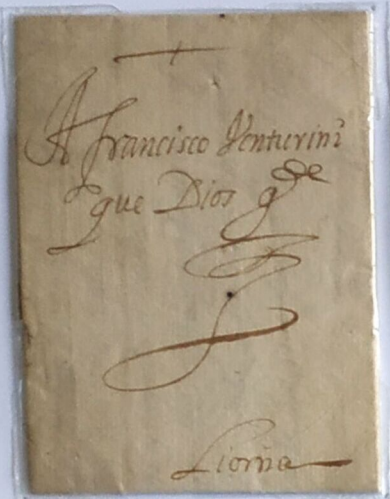 A Francisco Venturini
que Dios gde
Liorna